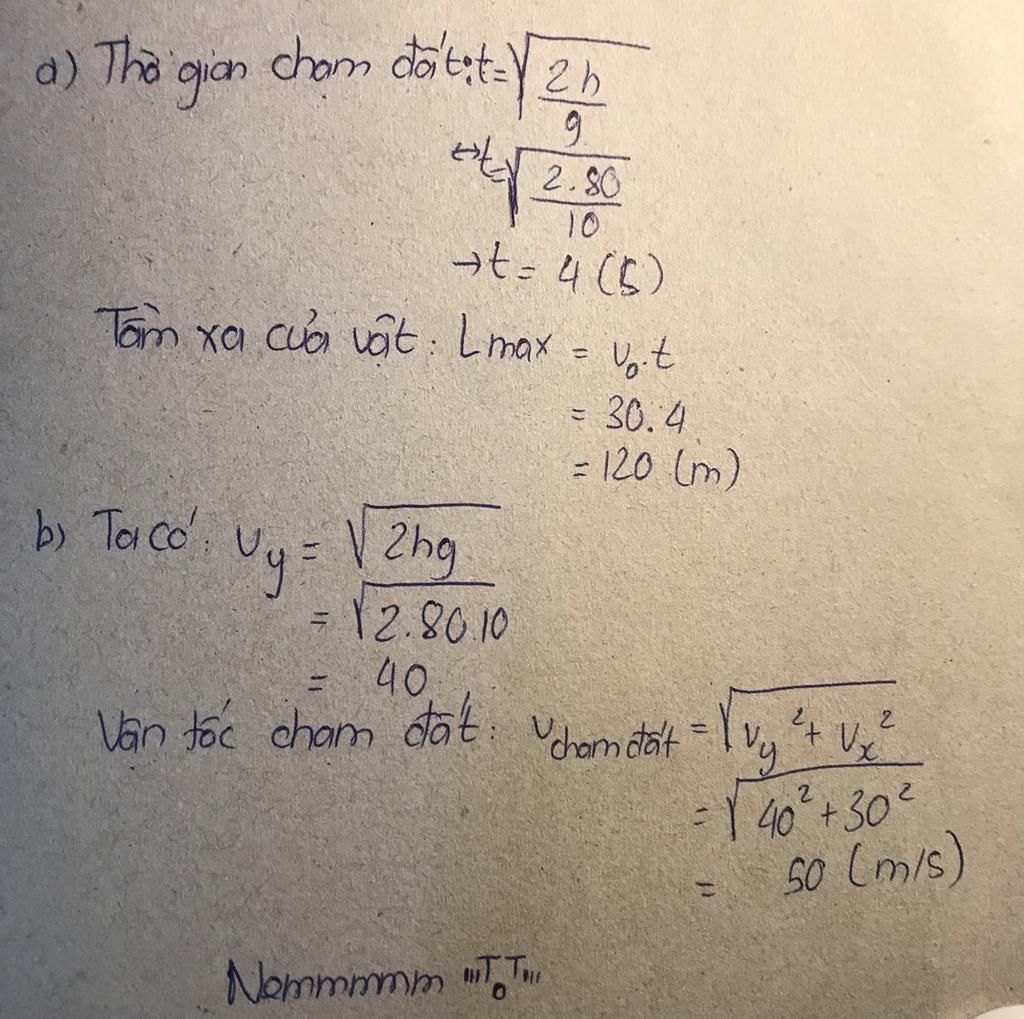 a) Thờ gian chạm đất: t = √(2h/g)
↔ t = √(2.80/10)
→ t = 4 (s)
Tầm xa của vật: Lmax = v₀.t
= 30.4
= 120 (m)
b) Ta có: vy = √(2hg)
= √(2.80.10)
= 40
Vận tốc chạm đất: vchạm đất = √(vy² + vx²)
= √(40² + 30²)
= 50 (m/s)
Nemmmmm ,,,T_oT,,,